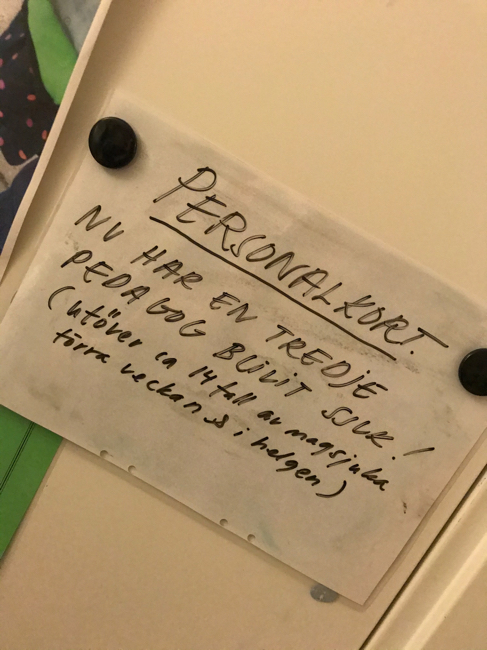 PERSONALKORT.
NU HAR EN TREDJE
PEDAGOG BLIVIT SJUK!
(utöver ca 14 fall av magsjuka
förra veckan & i helgen)